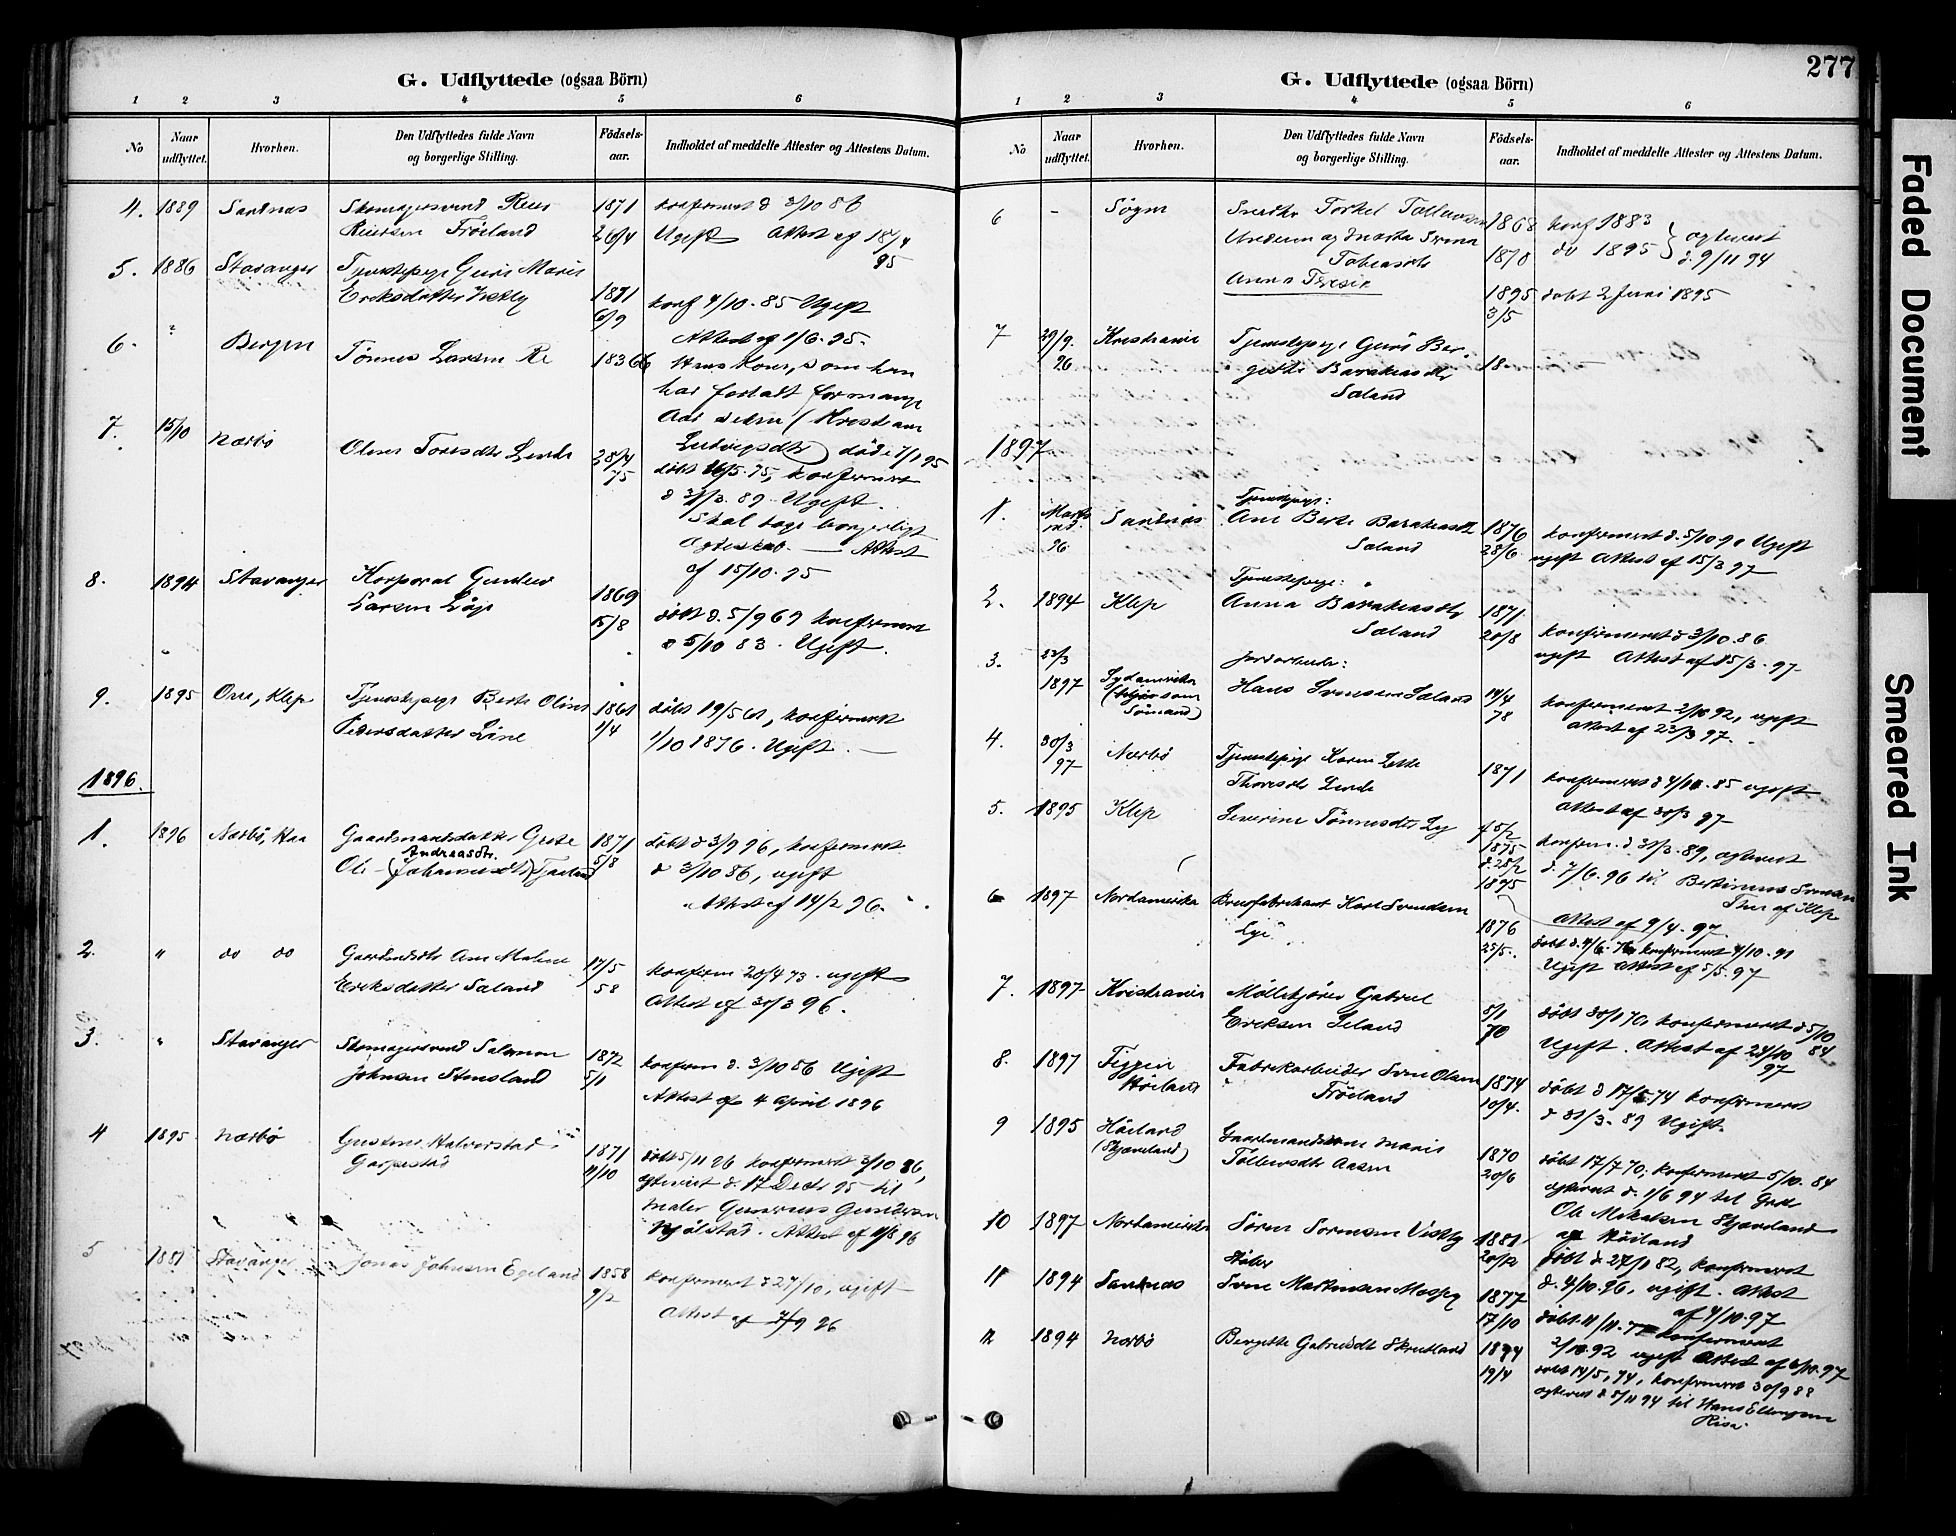 277
G. Udflyttede (ogsaa Börn)
1 2 3 4 5 6
No
Naar udflyttet.
Hvorhen.
Den Udflyttedes fulde Navn
og borgerlige Stilling.
Födsels-
aar.
Indholdet af meddelte Attester og Attestens Datum.
4. 1889 Sandnæs Skomagersvend Reier 1871 konfirmeret d 3/10 86
Reiersen Fröiland 26/4 Ugift Attest af 18/4
95
5. 1886 Stavanger Tjenestepige Guri Marie
Eriksdatter 1871 konf 4/10. 85 Ugift
6/9 Attest af 1/6. 95.
6. " Bergen Tönnes Larsen Re 1836 Hans Kone, som han
har forladt for mange
Aar siden (
7. 15/10 Nærbö Oline Toresdtr Lende 28/4 Ludvigsdtr) döde 7/1 95
75 döbt 16/5. 75, konfirmeret
d 31/3. 89. Ugift.
Skal tage borgerligt
Ægteskab. — Attest
af 15/10. 95
8. 1894 Stavanger Korporal
Larsen 1869 döbt d. 5/9 69 konfirmeret
15/8 d 5/10 83. Ugift.
9. 1895 Orre, Klep Tjenestepige Berte Oline 1861 döbt 19/5 61, konfirmeret
Pedersdatter Line 1/4 1/10 1876. Ugift. —
1896.
1. 1896 Nærbö, Haa Gaardmandsdatter Grete 1871 döbt d 3/9 96, konfirmeret
Andreasdtr.
Ole- 5/8 d 3/10 86, ugift
Attest af 14/2 96.
2. " do do Ane Malene 17/5 konfirm 20/4 73. ugift
Eriksdatter Sæland 58 Attest af 30/3 96.
3. " Stavanger Skomagersvend Salamon 1872 konfirm d. 3/10 86 Ugift
Johnsen Stensland 5/1 Attest af 4 April 1896
4 1895 Nærbö Gustine Halvorsdatr 1871 döbt 5/11 96 konfirmeret 3/10 86,
Garpestad 4/10 ægteviet d. 17 Decbr 95 til
Maler Gunnius Gundersen
Njölstad. Attest af 11/8 96
5 1881 Stavanger Jonas Johnsen Egeland 1858 konfirmeret d 27/10, ugift
9/2 Attest af 7/9 96
G. Udflyttede (ogsaa Börn)
1 2 3 4 5 6
No
Naar udflyttet.
Hvorhen.
Den Udflyttedes fulde Navn
og borgerlige Stilling.
Födsels-
aar.
Indholdet af meddelte Attester og Attestens Datum.
6 - Sogn Snedker Torkel Tollevsen 1868 konf 1883
og Marta 1870 do 1895 } ægteviet
Tobiasdtr d. 9/11 94
Anna 1895 döbt 2 Juni 1895
3/5
7 29/9. Kristiania Tjenestepige Guri Ber- 18—
96 gitte Barakiasdtr
Sæland
1897
Tjenestepige:
1. Marts Sandnæs Ane Berte Barakiasdtr 1876 konfirmeret d. 5/10 90 Ugift
md. 96 Sæland 28/6. ugift Attest af 15/3 97
Tjenestepige:
2. 1894 Klep Anna Barakiasdtr 1871. konfirmeret d 3/10. 86
Sæland 20/8 ugift Attest af 15/3. 97.
3. 23/3 Jordarbeider:
1897 Sydamerika Hans Svensen Sæland 14/4 konfirmeret 2/10 92, ugift
( som 78 Attest af 23/3 97.
Sömand)
4. 30/3 Nærbö Tjenestepige Karen 1871 konfirmeret d 4/10. 85 ugift
97 Thoresdtr Lende Attest af 30/3 97-
5. 1895 Klep Severine Tönnesdtr Ly f 5/2 konfirm. d 31/3. 89, ægteviet
1875 d 7/6. 96 til Bertinius Svensen
d. 28/2 Thu af Klep
1895 Attest af 9/4. 97.
6 1897 Nordamerika Karl Svendsen 1876 döbt d. 4/6. 76 konfirmeret 4/10. 91
Lye 25/5. Ugift Attest af 5/5. 97
7. 1897 Kristiania Möllekjörer Gabriel 5/1 döbt 30/1 70, konfirmeret d 5/10
Eriksen Leland 70 Ugift. Attest af 24/10 84
97
8. 1897 Figgen Fabrikarbeider Sven Olsen 1874 döbt d 17/5 74 konfirmeret
Höiland Fröiland 10/4. d 31/3. 89 Ugift.
9 1895 Höiland Gaardmandskone Maria 1870 döbt 17/7 70, konfirmeret 5/10. 84
(Skjæveland) Tollevsdtr Aasen 20/6 ægteviet d. 1/6 94 til Grd
Ole Mikalsen Skjæveland
af Höiland
10 1897 Nordamerika Sören Sörensen 1881 döbt d 27/1 82, konfirmeret
20/12 d. 4/10. 96, ugift. Attest
af 4/10. 97
11 1894 Sandnæs Sven Martinsen 1877 döbt 11/11. 77 konfirmeret
17/10 2/10. 92 ugift Attest af 6/10. 97
12 1894 Nærbö Bergitte Gabrielsdtr Skrudland 1874 döbt 14/5, 74, konfirmeret 30/9 88
19/4 ægteviet d 5/11 94 til Hans Ellingsen
Risa.
Faded Document
Smeared Ink